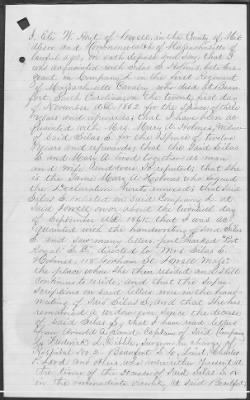 I, Eli W. Hoyt of Lowell, in the County of Mid-
dlesex and Commonwealth of Massachusetts of
lawful age, on oath depose and say, that I
was acquainted with Silas S. Holmes, late Ser-
geant in Company in the First Regiment
of Massachusetts Cavalry, who died at Beau-
fort South Carolina on the twenty first day
of November A.D. 1862 for the space of three
years and upwards; that I have been ac-
quainted with Mrs. Mary A. Holmes, Widow
of said Silas S. for the space of twelve
years and upwards; that the said Silas
S. and Mary A. lived together as man
and wife and were so reputed; that she
is the same Mary A. Holmes who signed
the Declaration hereto annexed; that said
Silas S. enlisted in said Company at
said Lowell on or about the twelfth day
of September A.D. 1861; that I was ac-
quainted with the handwriting of said Silas
S. and saw many letters post marked Port
Royal S. C. directed to Mrs. Silas S.
Holmes, 118 Gorham St. Lowell Mass.
the place where she then resided and still
continues to reside; and that the super-
scriptions on said letters were in the hand-
writing of said Silas S, and that she has
remained a widow ever since the decease
of said Silas S; that I have read letters
from Captain of said Company
Frederick L. Dibble, Surgeon in charge of
Hospital No. 2. Beaufort S. C.,
and others who were either present at
the time of the decease of said Silas S. or
in the immediate vicinity, at said Beaufort